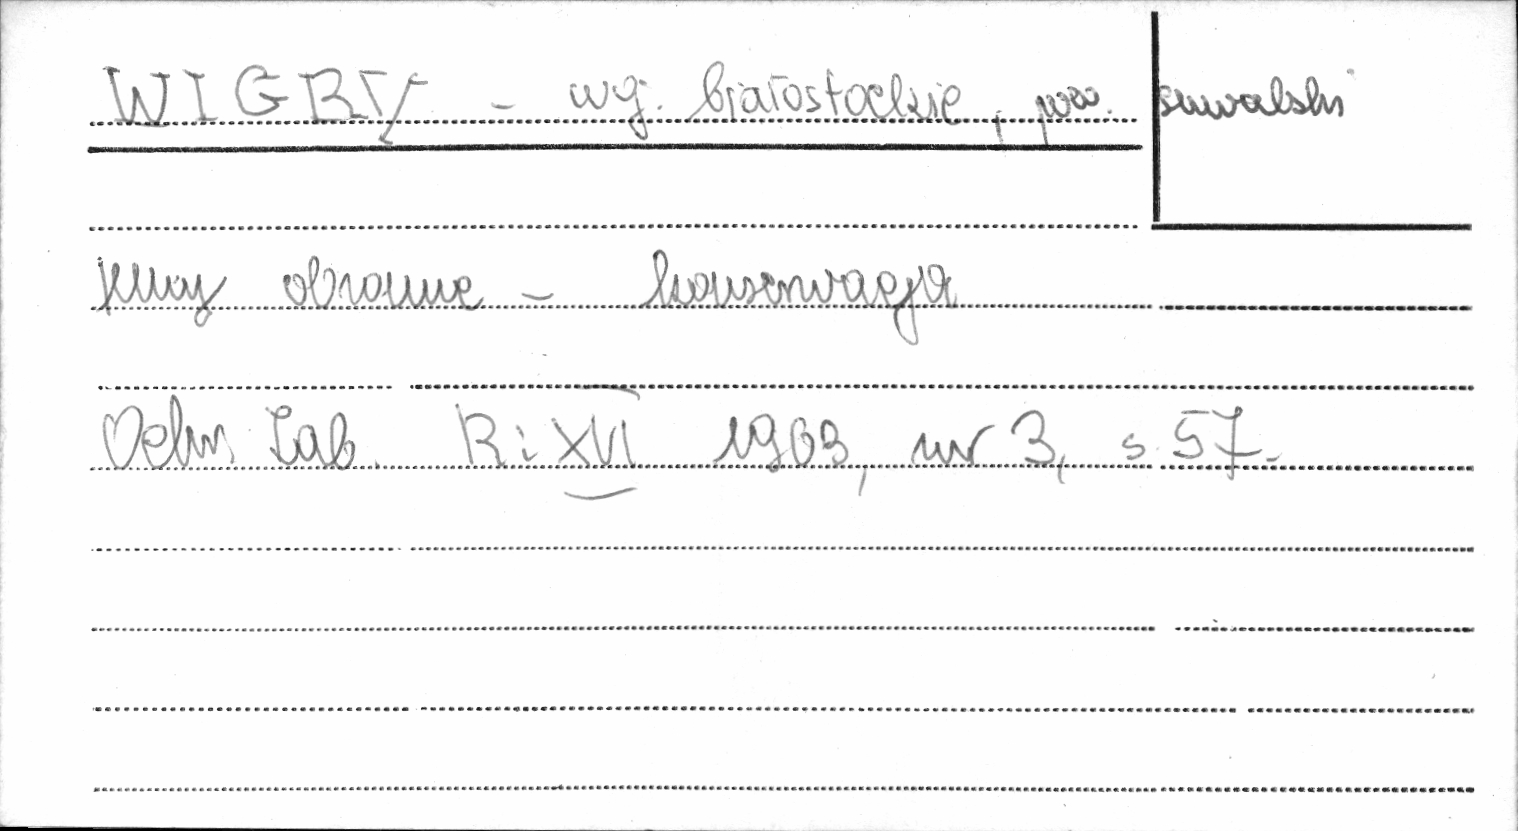 WIGRY - woj. białostockie, pow. suwalski
obronne - konserwacja
Ochr. Zab. R. XVI 1963, nr 3, s. 57.